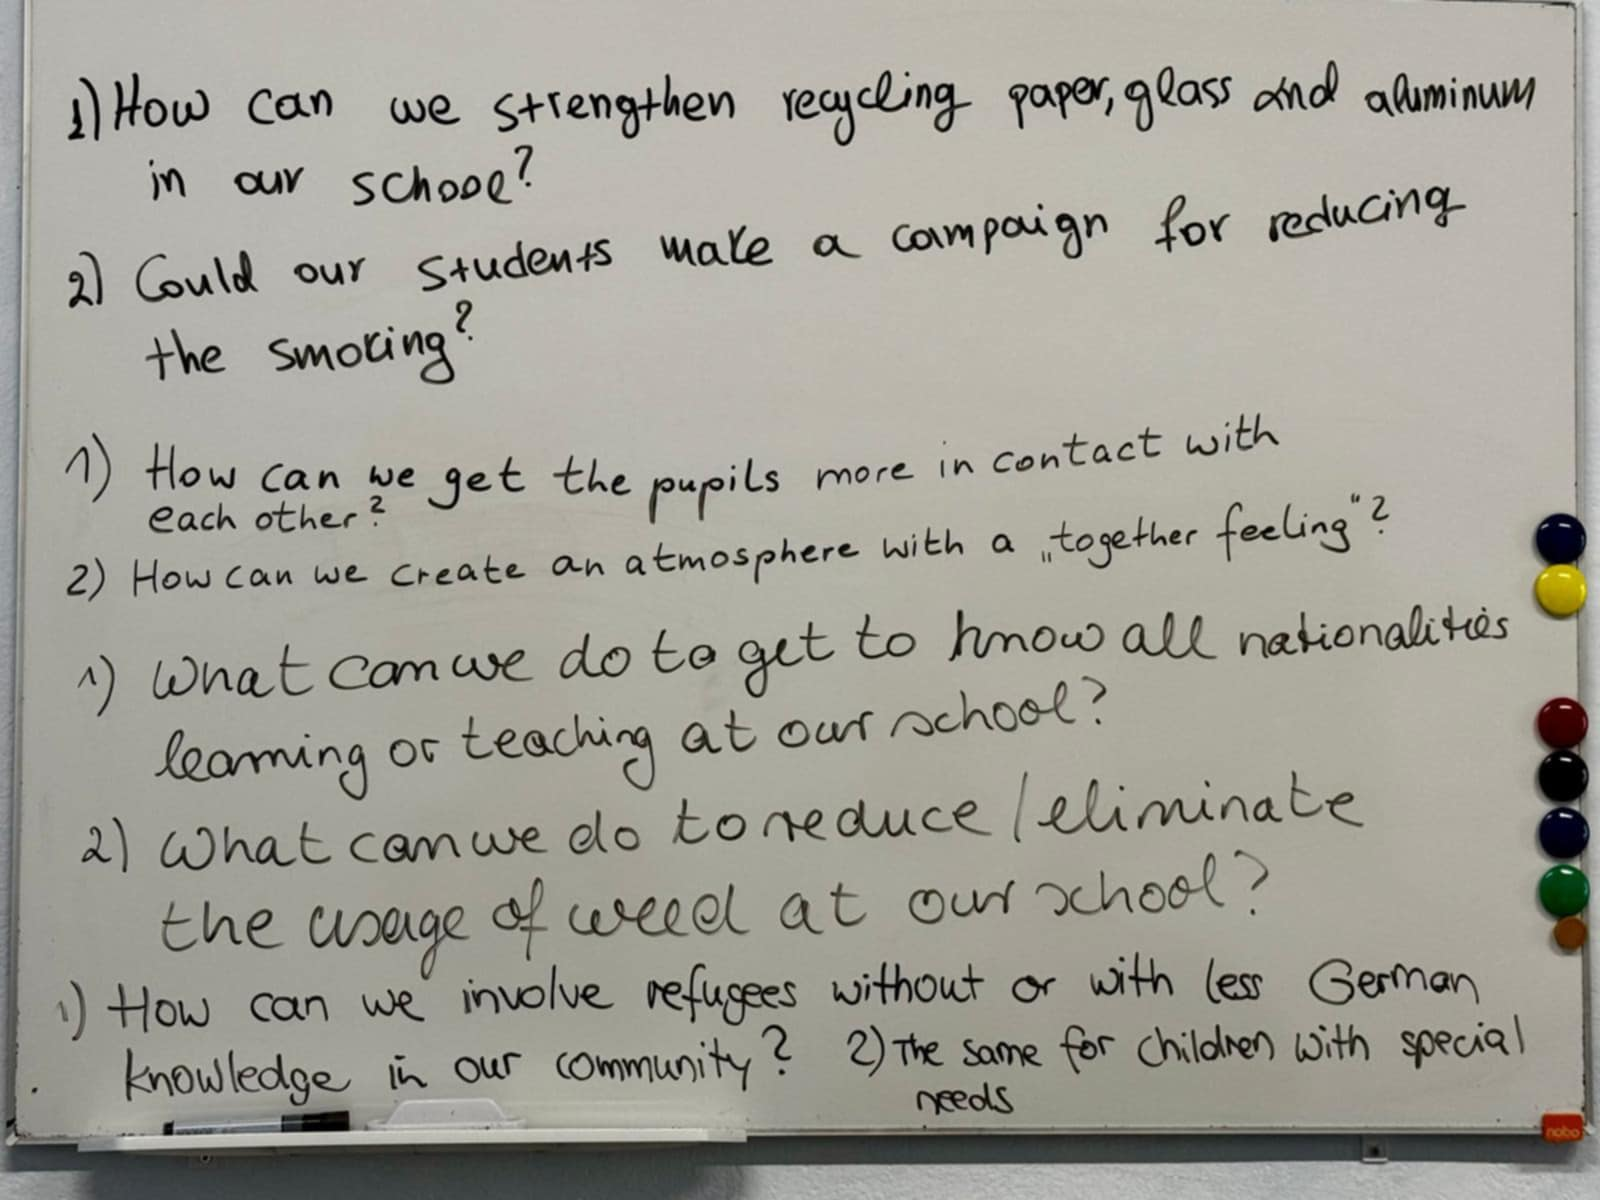 1) How can we strengthen recycling paper, glass and aluminum
in our school?
2) Could our students make a campaign for reducing
the smoking?
1) How can we get the pupils more in contact with
each other?
2) How can we create an atmosphere with a „together feeling"?
1) What can we do to get to know all nationalities
learning or teaching at our school?
2) What can we do to reduce / eliminate
the usage of weed at our school?
1) How can we involve refugees without or with less German
knowledge in our community? 2) The same for children with special
needs
nobo